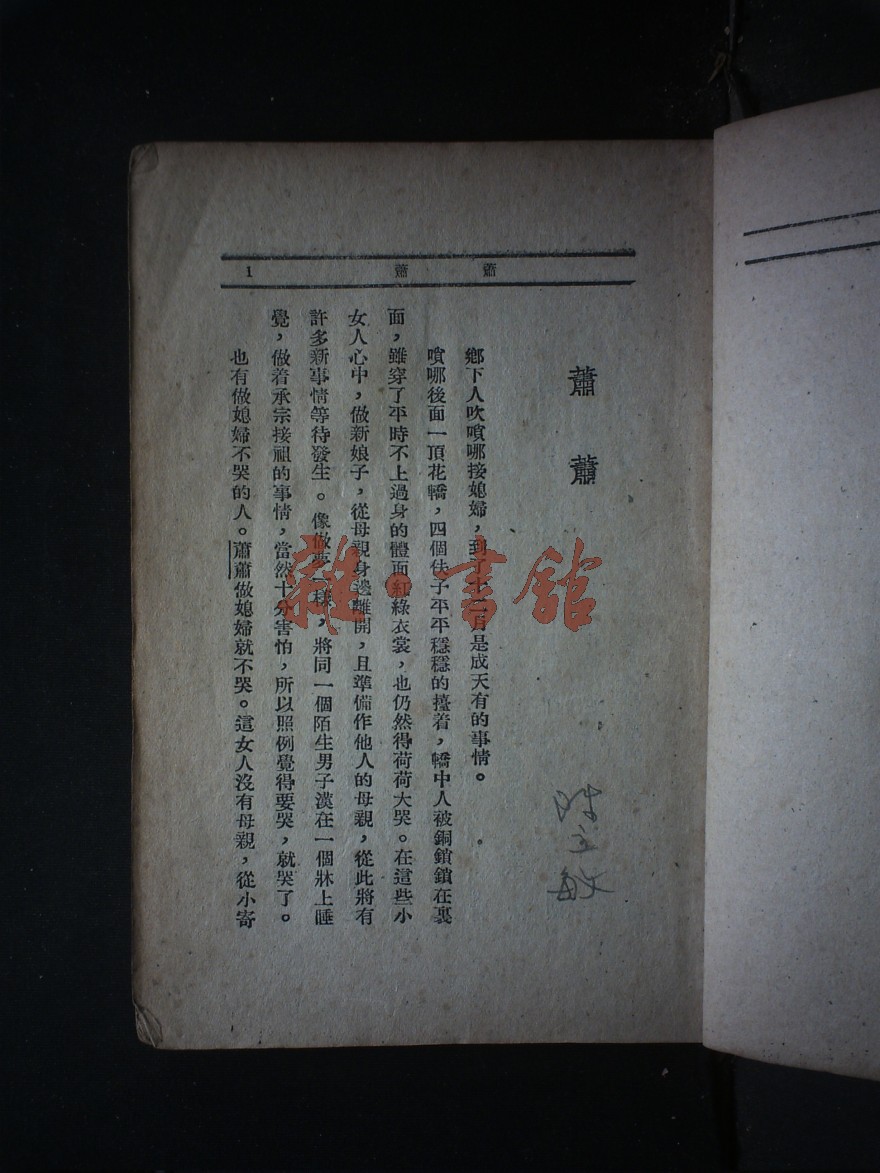 1
蕭蕭
蕭蕭
鄉下人吹嗩哪接媳婦，到了十二月是成天有的事情。
嗩哪後面一頂花轎，四個伕子平平穩穩的擡着，轎中人被銅鎖鎖在裏
面，雖穿了平時不上過身的體面紅綠衣裳，也仍然得荷荷大哭。在這些小
女人心中，做新娘子，從母親身邊離開，且準備作他人的母親，從此將有
許多新事情等待發生。像做夢一樣，將同一個陌生男子漢在一個牀上睡
覺，做着承宗接祖的事情，當然十分害怕，所以照例覺得要哭，就哭了。
也有做媳婦不哭的人。蕭蕭做媳婦就不哭。這女人沒有母親，從小寄
雜·書館